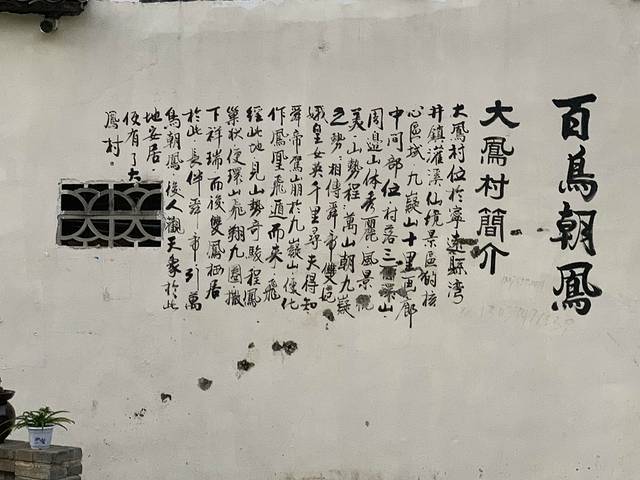 百鳥朝鳳
大鳳村簡介
大鳳村位於寧遠縣灣
井鎮灌溪仙境景區的核
心區域九嶷山十里画廊
中间部位村落三面深山
周边山体秀麗風景優
美山勢程萬山朝九嶷
之势相傳舜帝雙妃
娥皇女英千里尋夫得知
舜帝駕崩於九嶷山便化
作鳳凰飛遁而來飛
經此地見山勢奇駿程鳳
巢狀便環山飛翔九圈撤
下祥瑞而後雙鳳栖居
於此長伴舜帝引萬
鳥朝鳳後人觀天象於此
地安居
便有了大
鳳村。